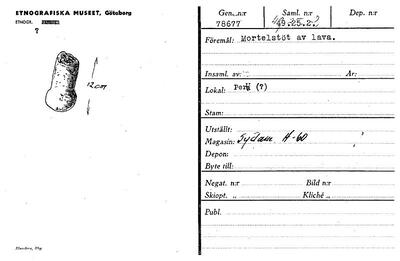 ETNOGRAFISKA MUSEET, Göteborg
ETNOGR.
?
12 cm
Gen. n:r Saml. n:r Dep. n:r
78677 49.25.2.
Föremål: Mortelstöt av lava.
Insaml. av: År:
Lokal: Peru (?)
Stam:
Utställt:
Magasin: Sydam H-60
Depon:
Byte till:
Negat. n:r Bild n:r
Skiopt. „ Kliché „
Publ.